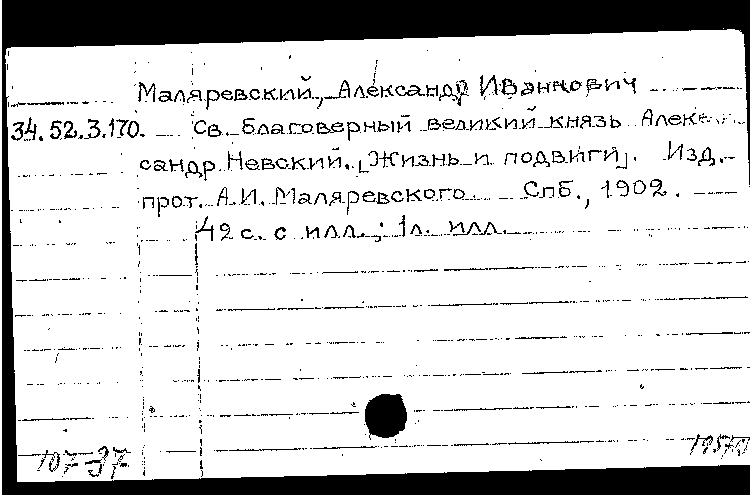 Маляревский, Александр Иваннович
34.52.3.170. Св. благоверный великий князь Алек-
сандр Невский. [Жизнь и подвиги]. Изд.
прот. А.И. Маляревского Спб., 1902.
42 с. с илл.; 1л. илл.
107-37